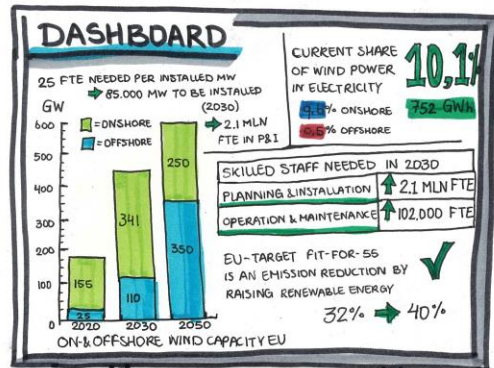 DASHBOARD
25 FTE NEEDED PER INSTALLED MW
➡ 85.000 MW TO BE INSTALLED
(2030)
➡ 2.1 MLN
FTE IN P&I
GW
= ONSHORE
= OFFSHORE
600
400
300
200
100
0
155
25
341
110
250
350
2020
2030
2050
ON & OFFSHORE WIND CAPACITY EU
CURRENT SHARE
OF WIND POWER
IN ELECTRICITY
10,1%
% ONSHORE
0,5% OFFSHORE
752 GWh
SKILLED STAFF NEEDED IN 2030
PLANNING & INSTALLATION ↑ 2.1 MLN FTE
OPERATION & MAINTENANCE ↑ 102,000 FTE
EU-TARGET FIT-FOR-55
IS AN EMISSION REDUCTION BY
RAISING RENEWABLE ENERGY
32% ➡ 40%